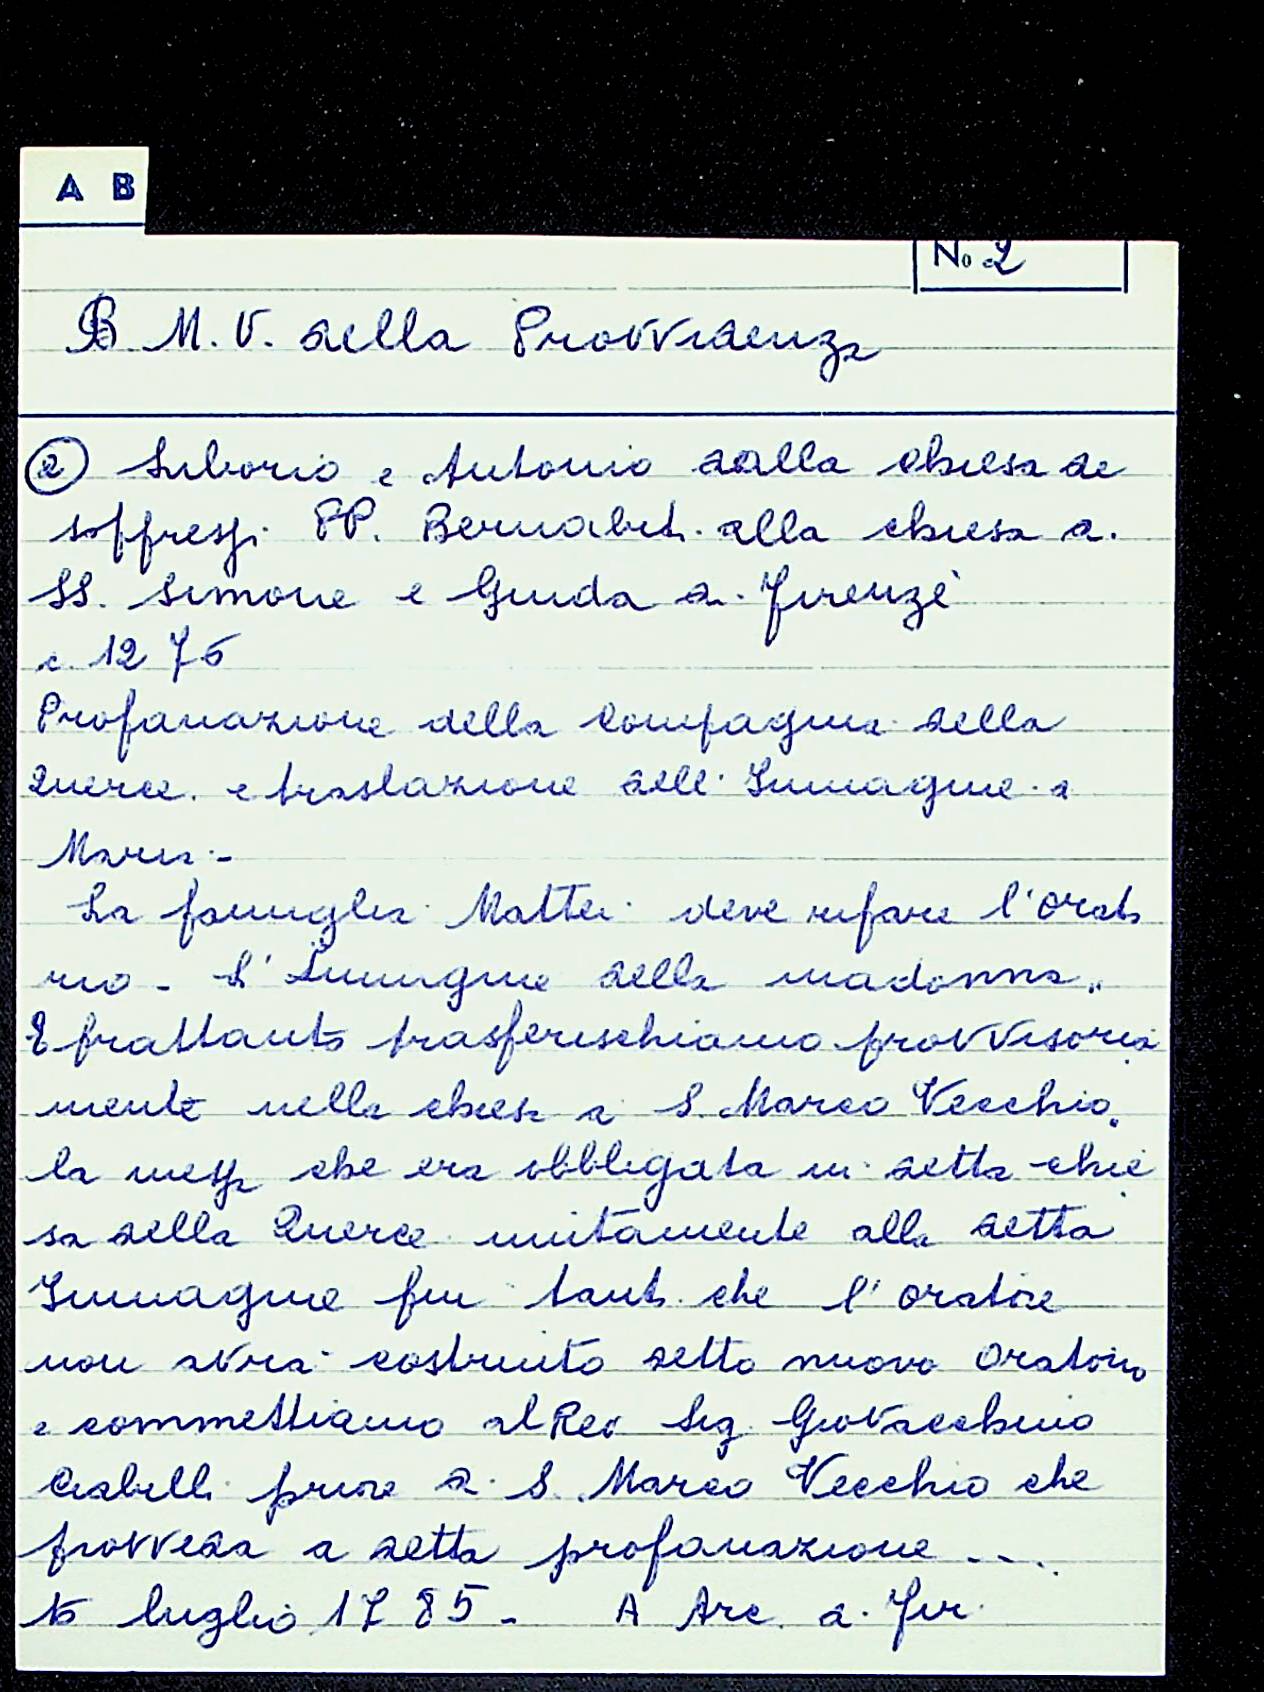 A B
No 2
B M. V. della Provvidenza
② Liborio e Antonio dalla chiesa de
soppressi PP. Bernabit. alla chiesa di
SS. Simone e Giuda di Firenze
c. 1276
Profanazione della Compagnia della
Querce e traslazione dell'Immagine di
Maria.-
La famiglia Mattei deve rifare l'orato
rio - L'Immagine della madonna..
E frattanto trasferischiamo provvisoria
mente nella chiesa di S. Marco Vecchio
la messa che era obbligata in detta chie
sa della Querce unitamente alla detta
Immagine fin tanto che l'oratore
non avrà costruito detto nuovo oratorio
e commettiamo al Rev Sig. Giovacchino
Ciabilli priore di S. Marco Vecchio che
provveda a detta profanazione ....
15 luglio 1785 - A Arc. di Fir.